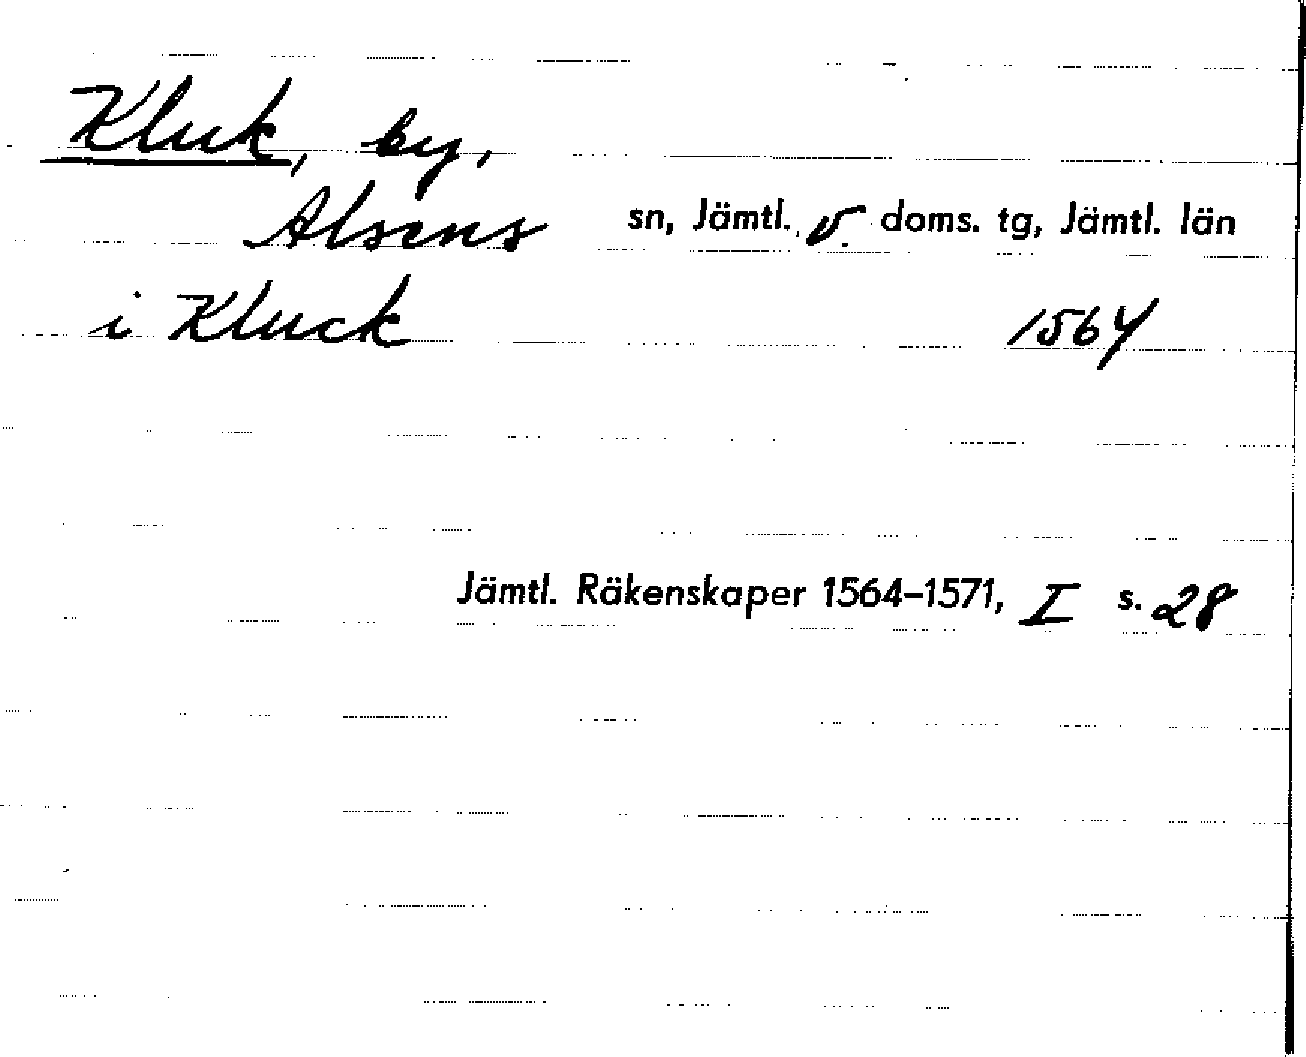 Kluk, by,
Alsens sn, Jämtl. v. doms. tg, Jämtl. län
i Kluck 1564
Jämtl. Räkenskaper 1564–1571, I s. 28